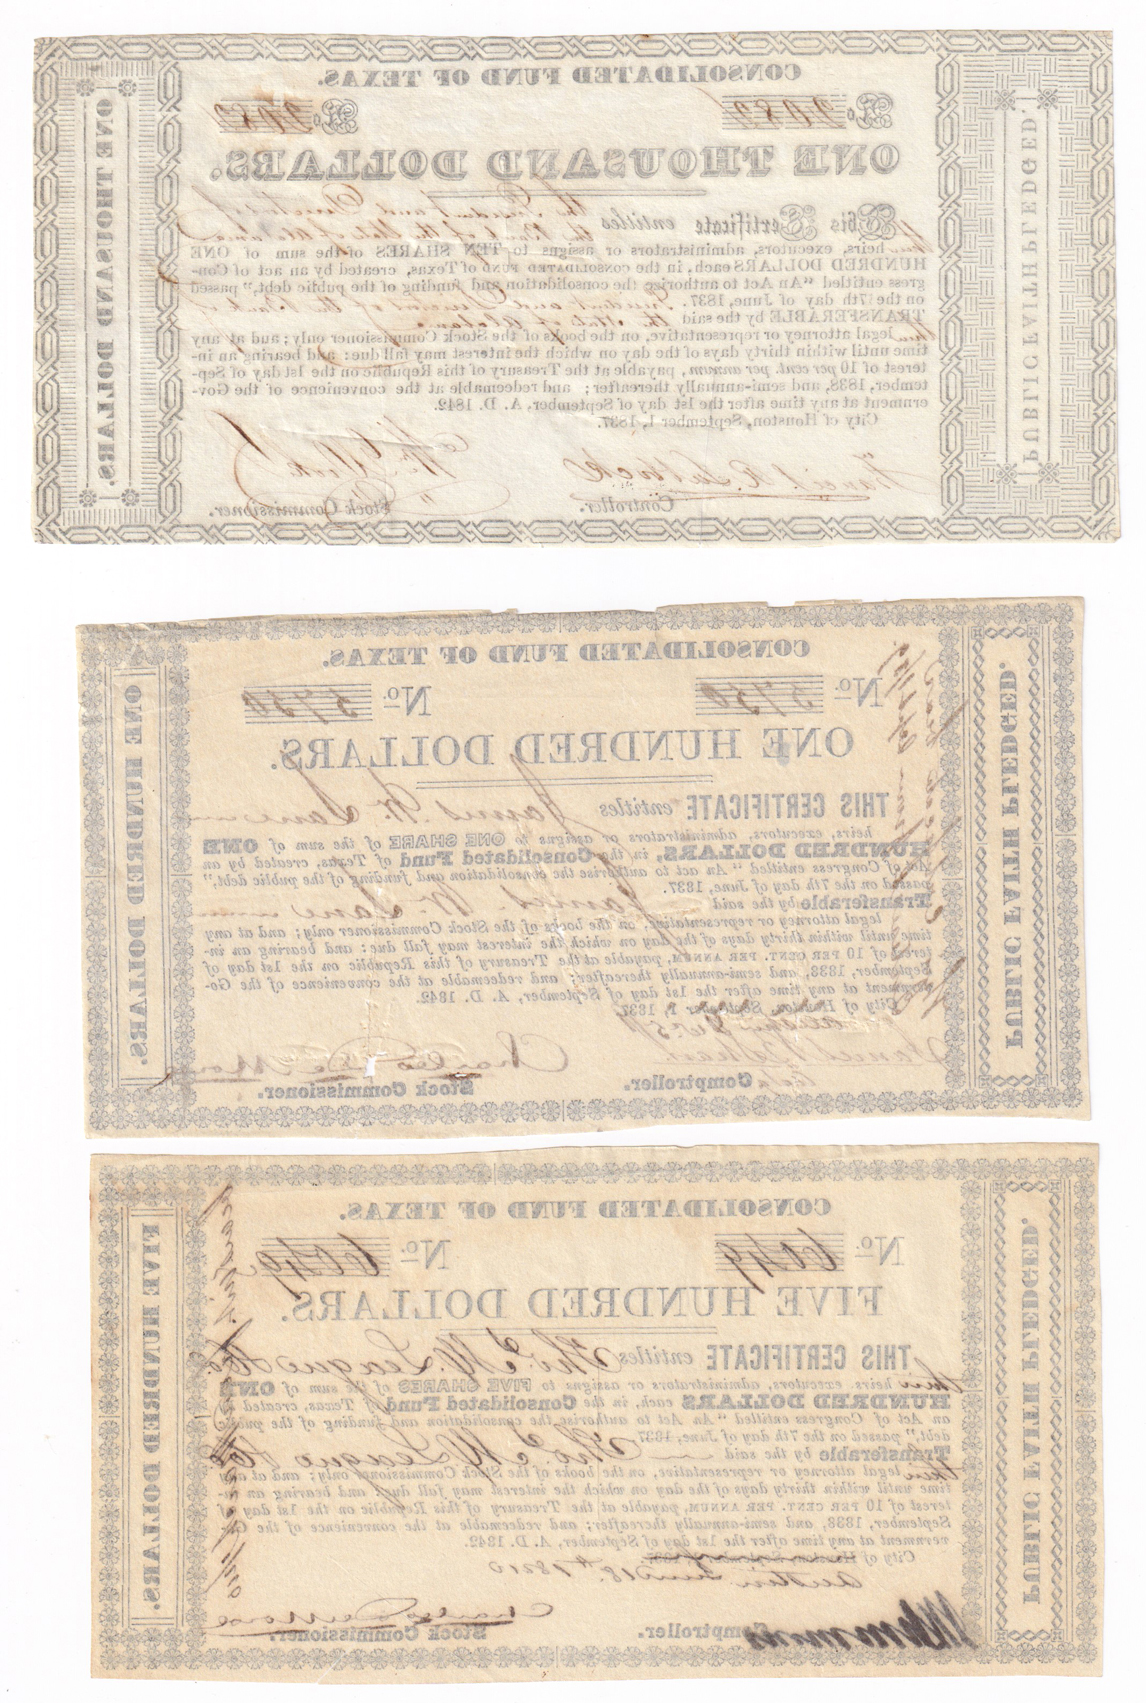 CONSOLIDATED FUND OF TEXAS.
No. 2082 No. 2082
ONE THOUSAND DOLLARS.
This Certificate entitles the President and Directors of
the Bank of the State of Alabama
their heirs, executors, administrators or assigns to TEN SHARES of the sum of ONE
HUNDRED DOLLARS each, in the CONSOLIDATED FUND of Texas, created by an act of Con-
gress entitled "An Act to authorize the consolidation and funding of the public debt," passed
on the 7th day of June, 1837.
TRANSFERABLE by the said President and Directors of the Bank of
the State of Alabama
their legal attorney or representative, on the books of the Stock Commissioner only; and at any
time until within thirty days of the day on which the interest may fall due: and bearing an in-
terest of 10 per cent. per annum, payable at the Treasury of this Republic on the 1st day of Sep-
tember, 1838, and semi-annually thereafter; and redeemable at the convenience of the Gov-
ernment at any time after the 1st day of September, A. D. 1842.
City of Houston, September 1, 1837.
Francis R. Lubbock
Controller.
Stock Commissioner.
PUBLIC FAITH PLEDGED.
ONE THOUSAND DOLLARS.
CONSOLIDATED FUND OF TEXAS.
No. 5750 No. 5750
ONE HUNDRED DOLLARS.
THIS CERTIFICATE entitles James W. Lane
heirs, executors, administrators or assigns to ONE SHARE of the sum of ONE
HUNDRED DOLLARS, in the Consolidated Fund of Texas, created by an
Act of Congress entitled "An act to authorise the consolidation and funding of the public debt,"
passed on the 7th day of June, 1837.
Transferable by the said James W. Lane
legal attorney or representative, on the books of the Stock Commissioner only; and at any
time until within thirty days of the day on which the interest may fall due: and bearing an in-
terest of 10 PER CENT. PER ANNUM, payable at the Treasury of this Republic on the 1st day of
September, 1838, and semi-annually thereafter; and redeemable at the convenience of the Go-
vernment at any time after the 1st day of September, A. D. 1842.
City of Houston, September 1, 1837.
Charles De Morse
Comptroller.
Stock Commissioner.
PUBLIC FAITH PLEDGED.
ONE HUNDRED DOLLARS.
CONSOLIDATED FUND OF TEXAS.
No. 6049 No. 6049
FIVE HUNDRED DOLLARS.
THIS CERTIFICATE entitles Tho. M. League & Co.
their heirs, executors, administrators or assigns to FIVE SHARES of the sum of ONE
HUNDRED DOLLARS each, in the Consolidated Fund of Texas, created
an Act of Congress entitled "An act to authorise the consolidation and funding of the public
debt," passed on the 7th day of June, 1837.
Transferable by the said Tho. M. League & Co.
their legal attorney or representative, on the books of the Stock Commissioner only; and at any
time until within thirty days of the day on which the interest may fall due; and bearing an in-
terest of 10 PER CENT. PER ANNUM, payable at the Treasury of this Republic on the 1st day of
September, 1838, and semi-annually thereafter; and redeemable at the convenience of the Go-
vernment at any time after the 1st day of September, A. D. 1842.
City of
Austin June 18th 1840
Charles De Morse
Comptroller.
Stock Commissioner.
PUBLIC FAITH PLEDGED.
FIVE HUNDRED DOLLARS.